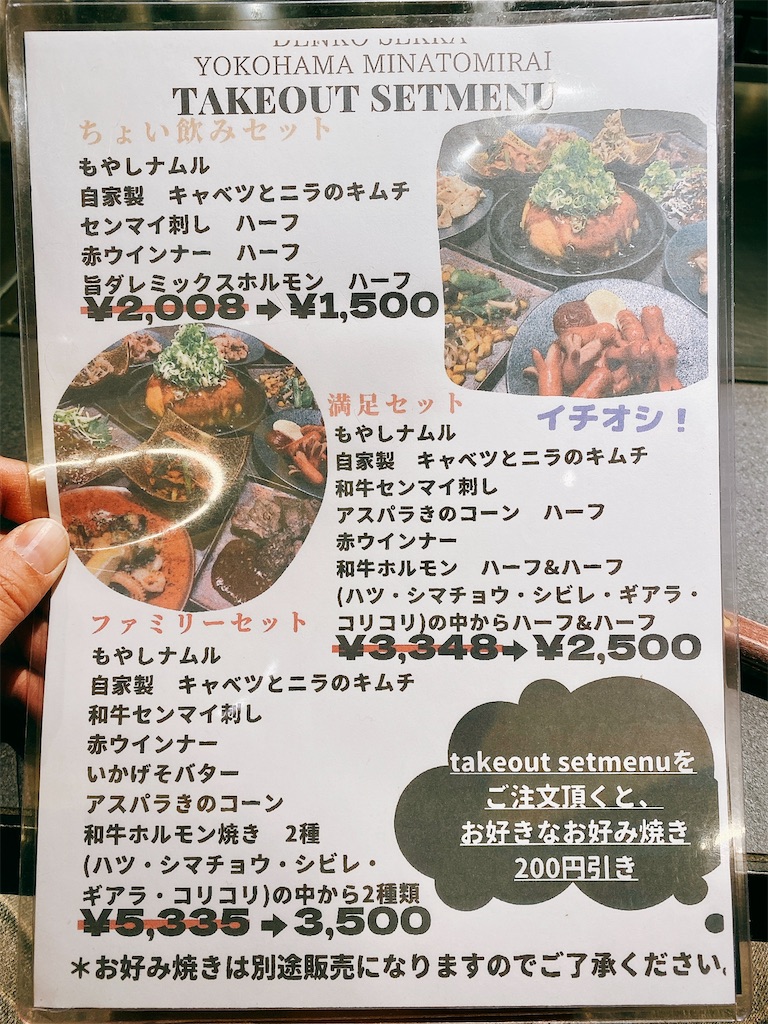 DENKO SEKKA
YOKOHAMA MINATOMIRAI
TAKEOUT SETMENU
ちょい飲みセット
もやしナムル
自家製　キャベツとニラのキムチ
センマイ刺し　ハーフ
赤ウインナー　ハーフ
旨ダレミックスホルモン　ハーフ
¥2,008➡¥1,500
イチオシ！
満足セット
もやしナムル
自家製　キャベツとニラのキムチ
和牛センマイ刺し
アスパラきのコーン　ハーフ
赤ウインナー
和牛ホルモン　ハーフ&ハーフ
(ハツ・シマチョウ・シビレ・ギアラ・
コリコリ)の中からハーフ&ハーフ
¥3,348➡¥2,500
ファミリーセット
もやしナムル
自家製　キャベツとニラのキムチ
和牛センマイ刺し
赤ウインナー
いかげそバター
アスパラきのコーン
和牛ホルモン焼き　2種
(ハツ・シマチョウ・シビレ・
ギアラ・コリコリ)の中から2種類
¥5,335➡3,500
takeout setmenuを
ご注文頂くと、
お好きなお好み焼き
200円引き
＊お好み焼きは別途販売になりますのでご了承ください。